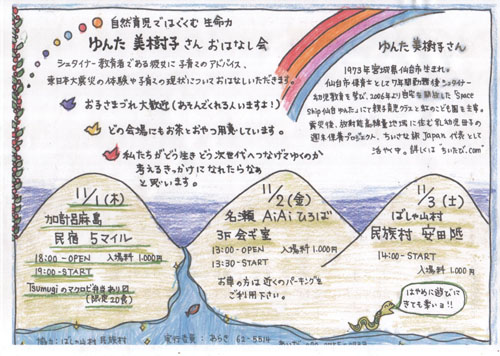 自然育児ではぐくむ 生命力
ゆんた 美樹子 さん おはなし会
シュタイナー教育者である彼女に子育てのアドバイス、
東日本大震災の体験や子育ての現状についておはなしいただきます。
おきさまづれ大歓迎(あそんでくれる人いますよ!)
どの会場にもお茶とおやつ用意しています。
私たちがどう生き どう次世代へつなげてゆくのか
考えるきっかけになれたらなぁ
と思います。
ゆんた 美樹子さん
1973年宮城県仙台市生まれ。
仙台市保育士として7年間勤務後シュタイナー
幼児教育を学び、2006年より自宅を開放した"Space
ship仙台ゆんた"にて親子育児クラスと虹のこども園を主宰。
震災後、放射能高線量地域に住む乳幼児母子の
週末保養プロジェクト、ちいさな旅Japan 代表として
活やく中。詳しくは"ちいたび.com"
11/1(木)
加計呂麻島
民宿 5マイル
18:00-OPEN 入場料 1.000円
19:00-START
Tsumugiのマクロビ弁当あり〼
(限定20食)
11/2(金)
名瀬 AiAiひろば
3F 会ぎ室
13:00-OPEN 入場料 1.000円
13:30-START
お車の方は 近くのパーキングを
ご利用下さい。
11/3(土)
ばしゃ山村
民族村 安田邸
14:00-START
入場料 1.000円
はやめに遊びに
きても幸いョ!!
協力:ばしゃ山村 民族村
実行委員: あらき 62-5514